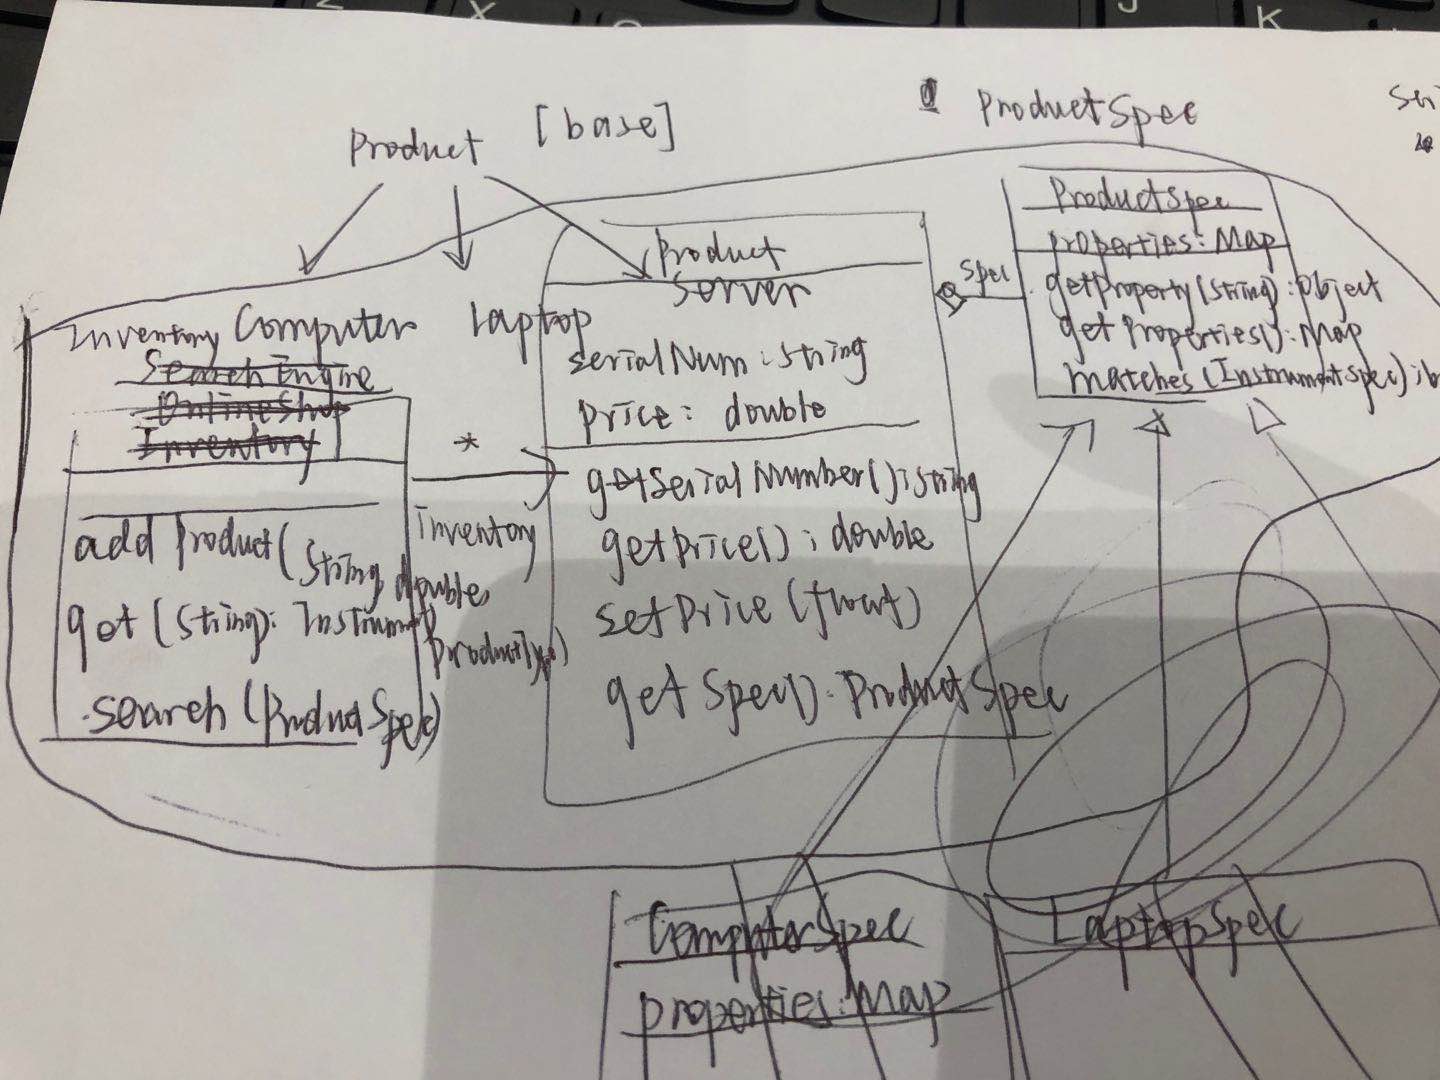 Z
X
J
K
Product [base]
ProductSpec
Computer
Laptop
Server
Inventory
SearchEngine
OnlineShop
Inventory
add Product(String, double,
ProductType)
get(String): Instrument
search(ProductSpec)
*
inventory
Product
serialNum: String
price: double
getSerialNumber(): String
getPrice(): double
setPrice(float)
getSpec(): ProductSpec
spec
ProductSpec
properties: Map
getProperty(String): Object
getProperties(): Map
matches(InstrumentSpec): b
ComputerSpec
properties: Map
LaptopSpec